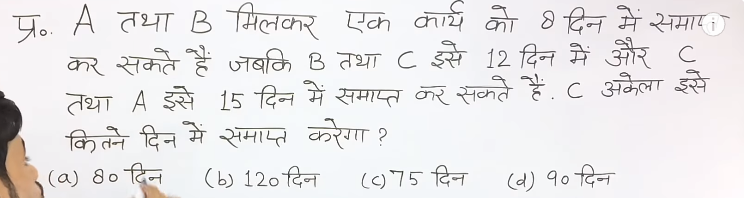 प्र०. A तथा B मिलकर एक कार्य को 8 दिन में समाप्त
कर सकते हैं जबकि B तथा C इसे 12 दिन में और C
तथा A इसे 15 दिन में समाप्त कर सकते हैं. C अकेला इसे
कितने दिन में समाप्त करेगा ?
(a) 80 दिन (b) 120 दिन (c) 75 दिन (d) 90 दिन